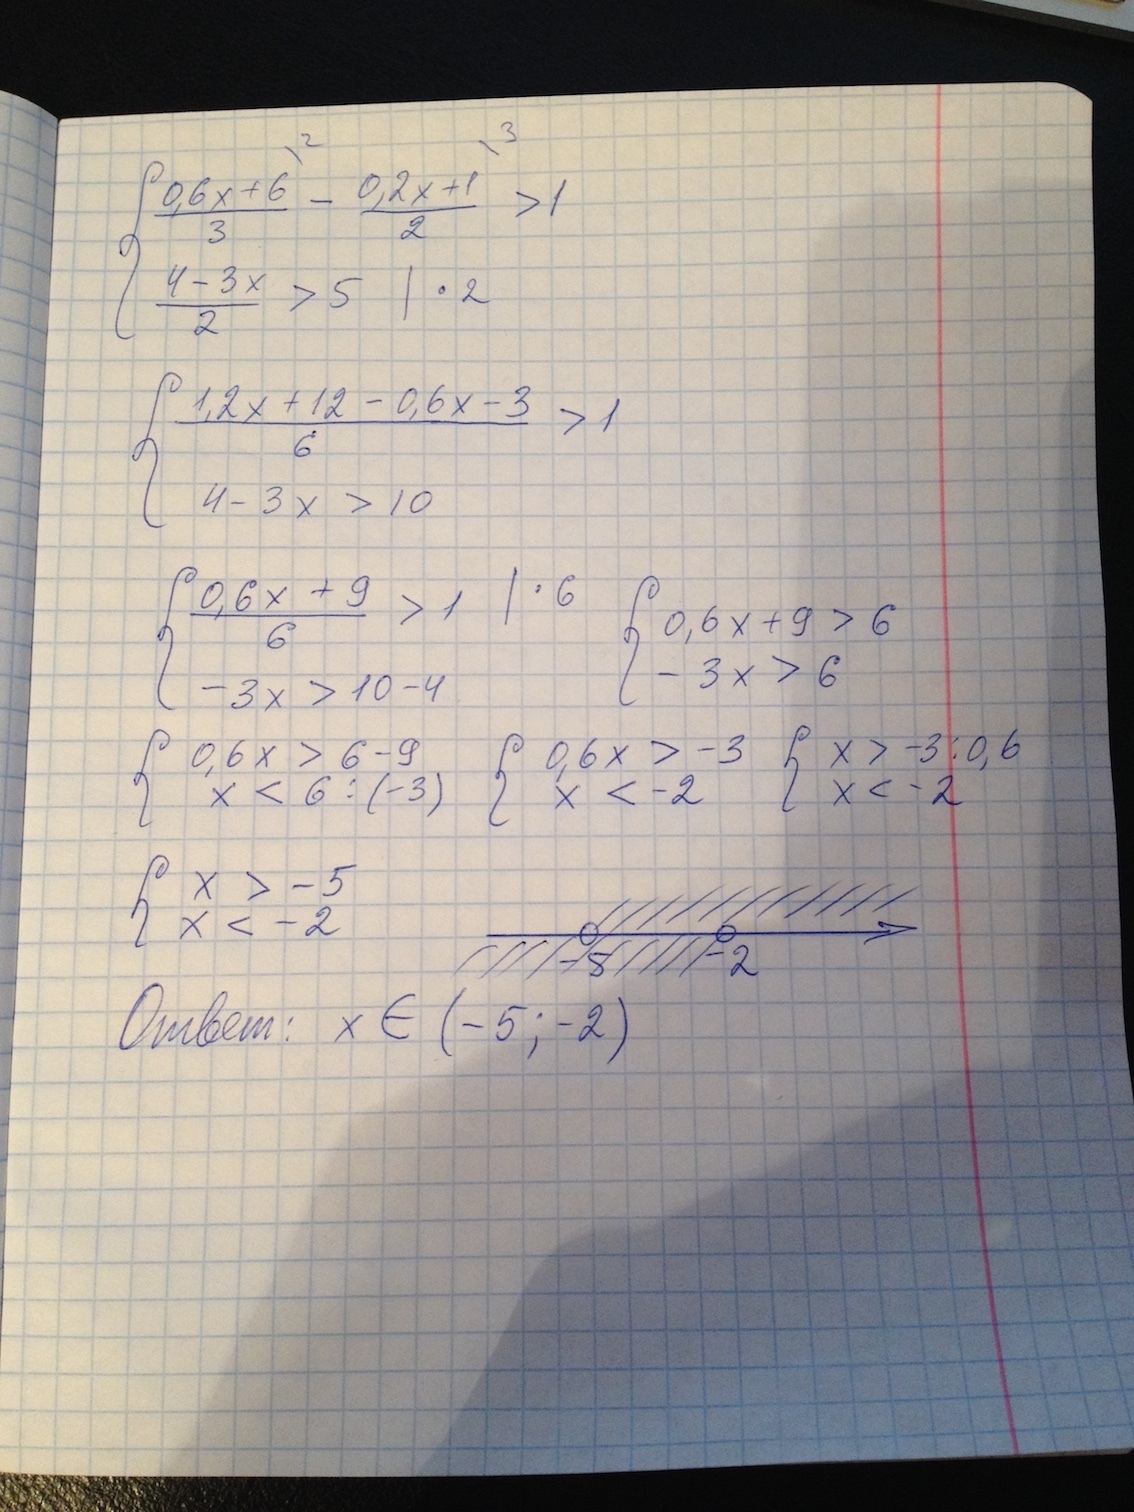 { (0,6x+6)/3 \2 - (0,2x+1)/2 \3 > 1
(4-3x)/2 > 5 | · 2
{ (1,2x+12-0,6x-3)/6 > 1
4-3x > 10
{ (0,6x+9)/6 > 1 | · 6
-3x > 10-4
{ 0,6x+9 > 6
-3x > 6
{ 0,6x > 6-9
x < 6:(-3)
{ 0,6x > -3
x < -2
{ x > -3:0,6
x < -2
{ x > -5
x < -2
-5 -2
Ответ: x ∈ (-5; -2)